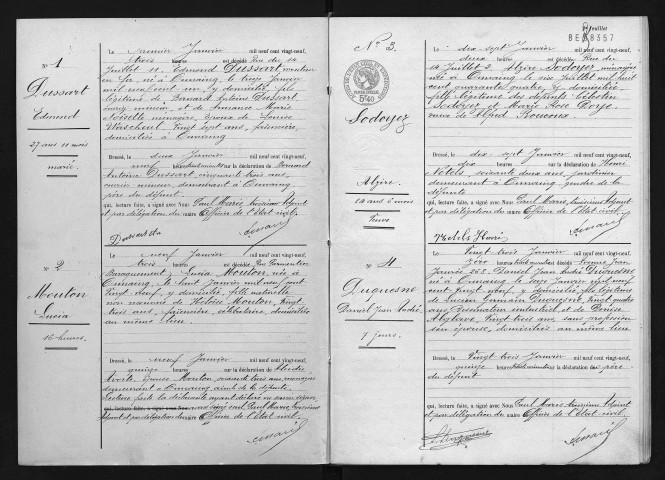 N° 1
Dussart
Edmond
27 ans 11 mois
marié
Le premier Janvier mil neuf cent vingt-neuf,
trois heures est décédé Rue du 14
Juillet 11, Edmond Dussart
en fer, né à Onnaing, le trois Janvier
mil neuf cent un, y domicilié, fils
légitime de Bernard Antoine Dussart,
ouvrier mineur, et de Marie
Noiselle ménagère, époux de Louise
Wascheul, vingt sept ans, journalière,
domiciliés à Onnaing
Dressé, le deux Janvier mil neuf cent vingt-neuf,
neuf heures sur la déclaration de Bernard
Antoine Dussart, cinquante trois ans,
ouvrier mineur, demeurant à Onnaing,
père du défunt
qui, lecture faite, a signé avec Nous Paul Marié, troisième Adjoint
et par délégation du maire Officier de l'état civil.
Dussart
N° 2
Mouton
Lucia
16 heures.
Le neuf Janvier mil neuf cent vingt-neuf,
trois heures est décédée Rue
Baraquement, Lucia Mouton, née à
Onnaing, le huit Janvier mil neuf cent
vingt neuf, y domiciliée, fille naturelle
non reconnue de Héloïse Mouton, vingt
trois ans, journalière, célibataire, domiciliée
au même lieu.
Dressé, le neuf Janvier mil neuf cent vingt-neuf,
quinze heures sur la déclaration de
Mouton, soixante trois ans, ménagère
demeurant à Onnaing, de la défunte.
Lecture faite la déclarante ayant déclaré ne savoir signer
Paul Marié, troisième
Adjoint et par délégation du maire Officier de l'état civil.
feuillet
BE 8357
N° 3.
Sodoyez
Alzire.
84 ans 6 mois
Veuve
Le dix sept Janvier mil neuf cent vingt-neuf,
deux heures est décédée Rue du
14 Juillet 2, Alzire Sodoyez, ménagère
née à Onnaing le six Juillet mil huit
cent quarante quatre, y domiciliée
fille légitime des défunts Célestin
Sodoyez et Marie Rose Doye.
veuve de Alfred Boucoux
Dressé, le dix sept Janvier mil neuf cent vingt-neuf,
dix heures sur la déclaration de Henri
Notels, soixante deux ans, jardinier
demeurant à Onnaing, gendre de la
défunte
qui, lecture faite, a signé avec Nous Paul Marié, troisième Adjoint
et par délégation du maire Officier de l'état civil.
N° 4
Duquesne
Daniel Jean André
7 jours.
Le Vingt trois Janvier mil neuf cent vingt-neuf,
zéro heures est décédé Avenue Jean
Jaurès 263, Daniel Jean André Duquesne
né à Onnaing, le seize Janvier mil neuf
cent vingt neuf, y domicilié, fils légitime
de Lucien Germain Duquesne, vingt quatre
ans, Dessinateur industriel, et de Denise
vingt trois ans, sans profession
son épouse, domiciliés au même lieu
Dressé, le Vingt trois Janvier mil neuf cent vingt-neuf,
quinze heures sur la déclaration du père
du défunt
qui, lecture faite, a signé avec Nous Paul Marié, troisième Adjoint
et par délégation du maire Officier de l'état civil.